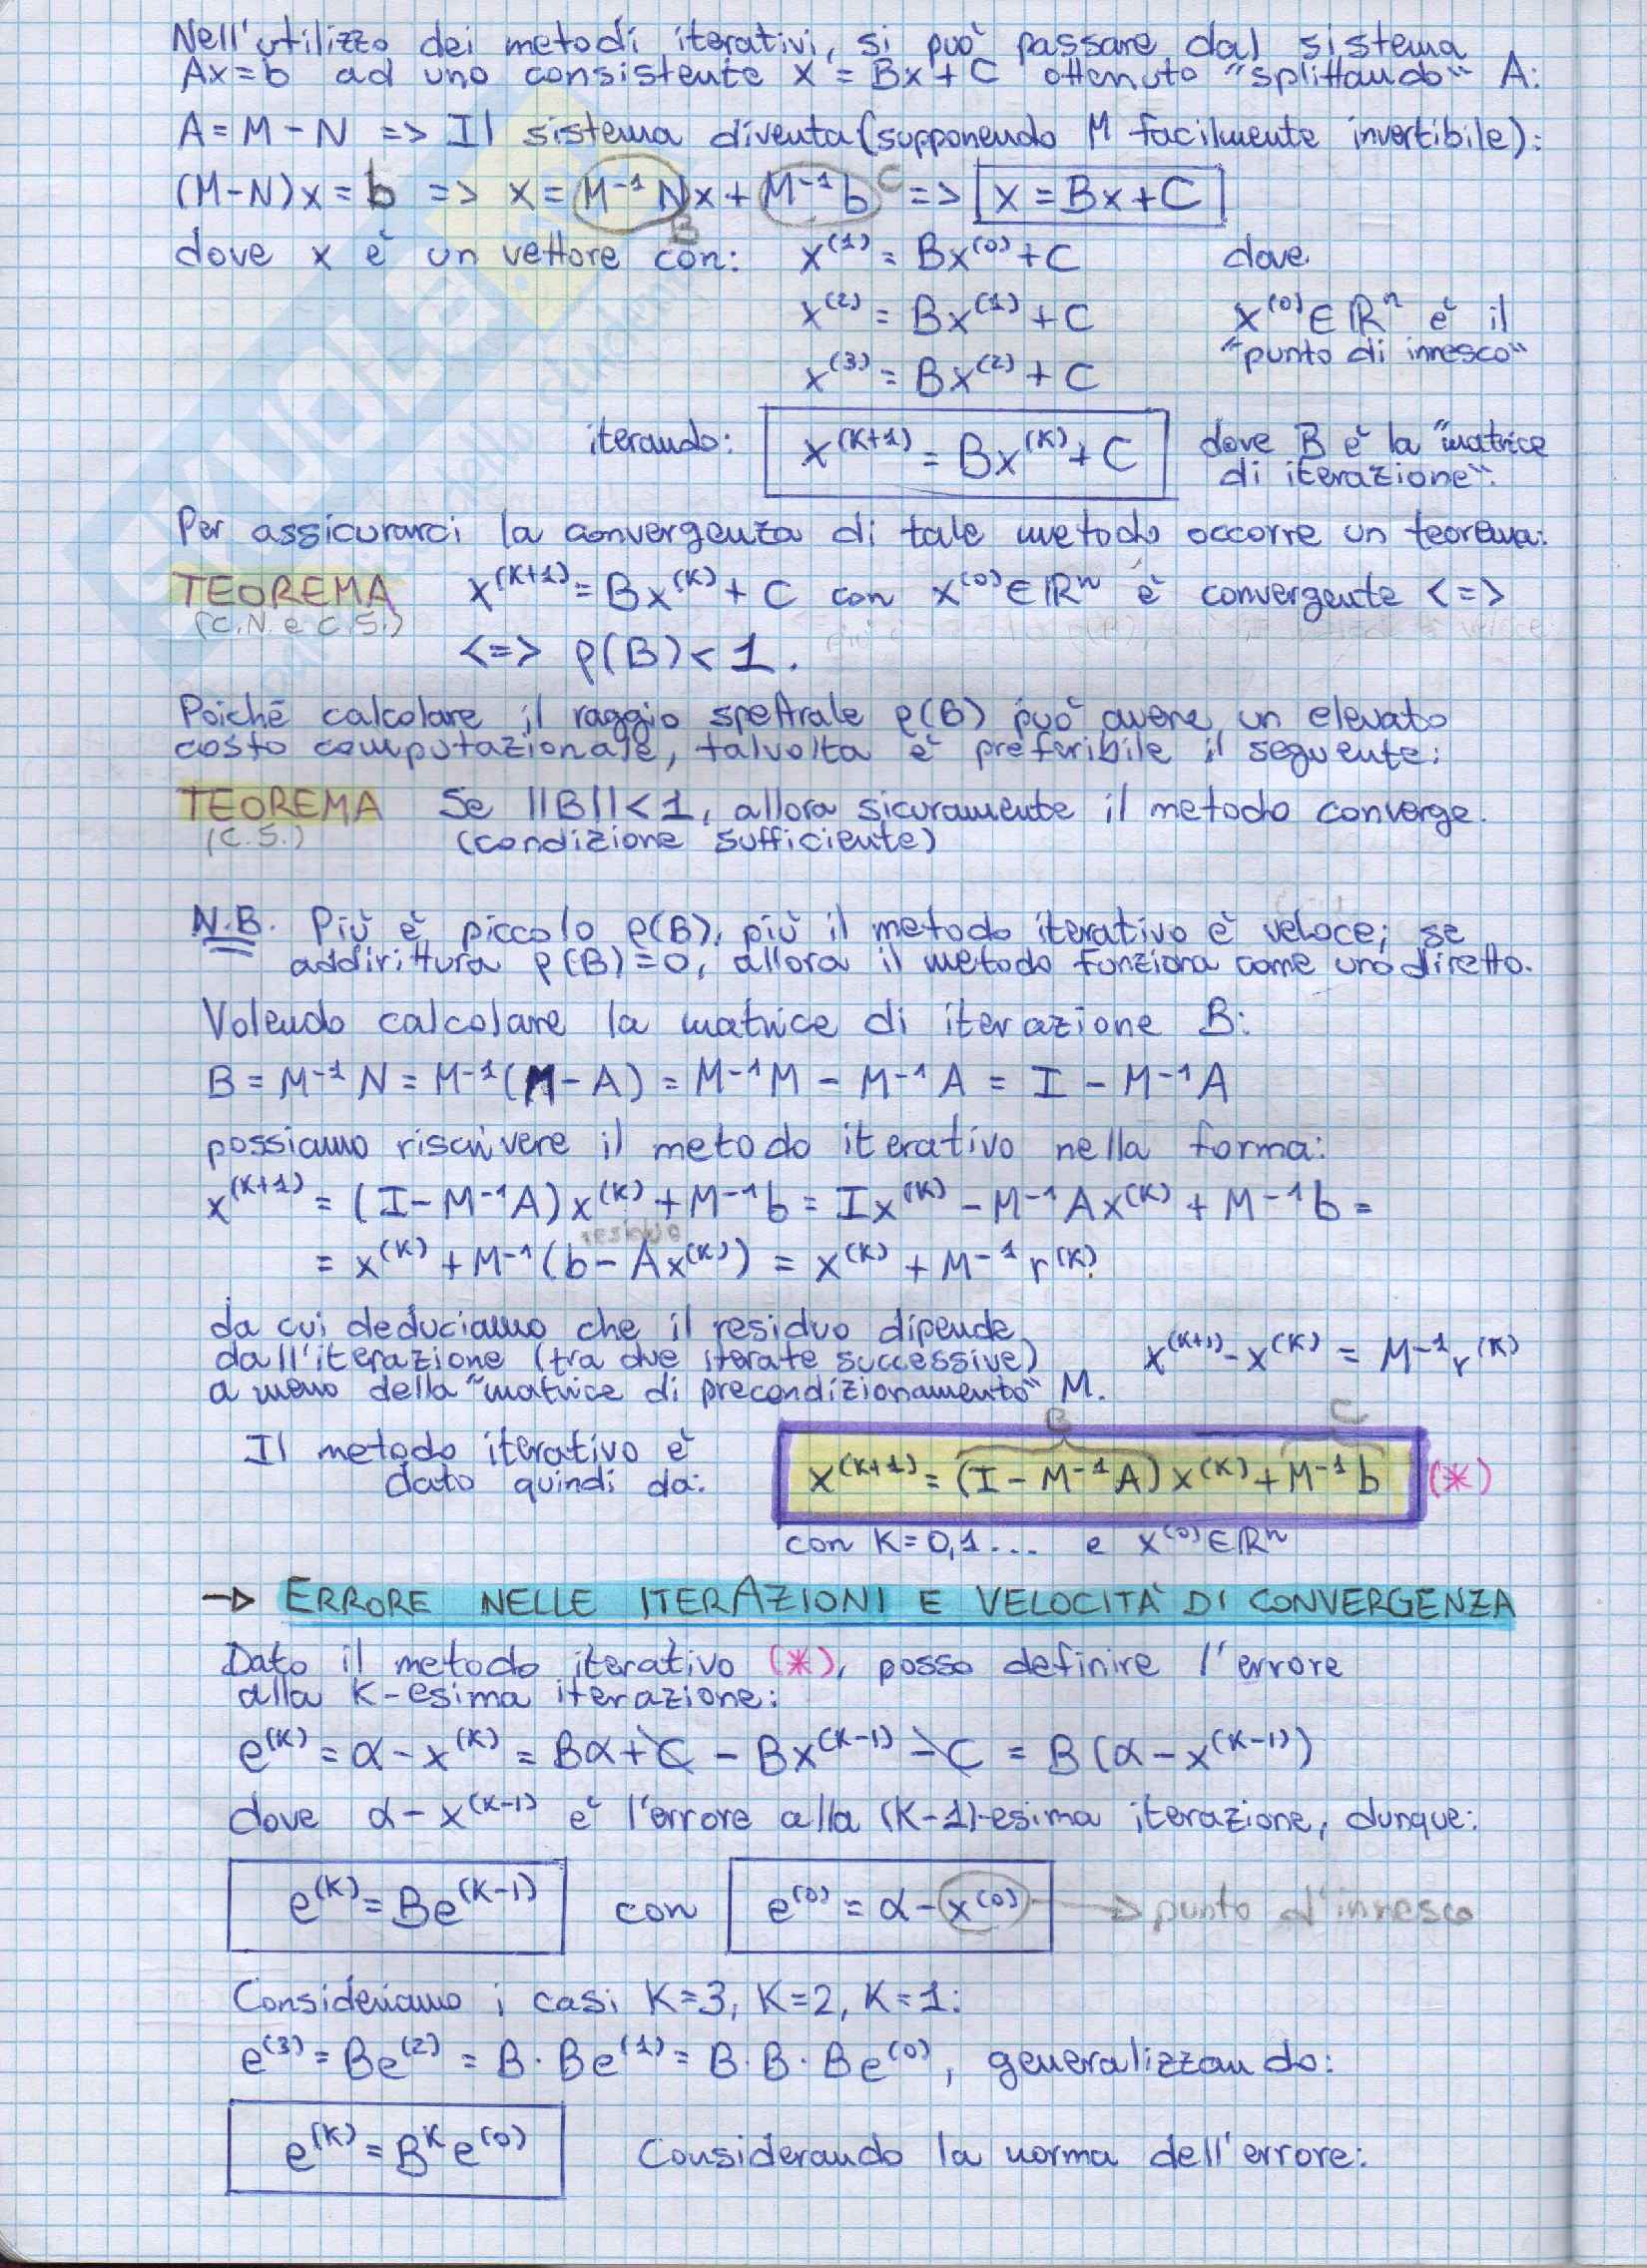 Nell'utilizzo dei metodi iterativi, si può passare dal sistema
Ax=b ad uno consistente x = Bx + C ottenuto "splittando" A:
A = M - N => Il sistema diventa (supponendo M facilmente invertibile):
(M-N)x = b => x = M⁻¹Nx + M⁻¹b => x = Bx + C
B C
dove x è un vettore con: x⁽¹⁾ = Bx⁽⁰⁾ + C dove
x⁽²⁾ = Bx⁽¹⁾ + C x⁽⁰⁾ ∈ ℝⁿ è il
"punto di innesco"
x⁽³⁾ = Bx⁽²⁾ + C
iterando: x⁽ᴷ⁺¹⁾ = Bx⁽ᴷ⁾ + C dove B è la "matrice
di iterazione".
Per assicurarci la convergenza di tale metodo occorre un teorema:
TEOREMA x⁽ᴷ⁺¹⁾ = Bx⁽ᴷ⁾ + C con x⁽⁰⁾ ∈ ℝⁿ è convergente <=>
(C.N. e C.S.)
<=> ρ(B) < 1.
Poiché calcolare il raggio spettrale ρ(B) può avere un elevato
costo computazionale, talvolta è preferibile il seguente:
TEOREMA Se ||B|| < 1, allora sicuramente il metodo converge.
(C.S.) (condizione sufficiente)
N.B. Più è piccolo ρ(B), più il metodo iterativo è veloce; se
addirittura ρ(B)=0, allora il metodo funziona come uno diretto.
Volendo calcolare la matrice di iterazione B:
B = M⁻¹N = M⁻¹(M - A) = M⁻¹M - M⁻¹A = I - M⁻¹A
possiamo riscrivere il metodo iterativo nella forma:
x⁽ᴷ⁺¹⁾ = (I - M⁻¹A)x⁽ᴷ⁾ + M⁻¹b = Ix⁽ᴷ⁾ - M⁻¹Ax⁽ᴷ⁾ + M⁻¹b =
residuo
= x⁽ᴷ⁾ + M⁻¹(b - Ax⁽ᴷ⁾) = x⁽ᴷ⁾ + M⁻¹r⁽ᴷ⁾.
da cui deduciamo che il residuo dipende
dall'iterazione (tra due iterate successive) x⁽ᴷ⁺¹⁾ - x⁽ᴷ⁾ = M⁻¹r⁽ᴷ⁾
a meno della "matrice di precondizionamento" M.
B C
Il metodo iterativo è
dato quindi da: x⁽ᴷ⁺¹⁾ = (I - M⁻¹A)x⁽ᴷ⁾ + M⁻¹b (*)
con K=0,1... e x⁽⁰⁾ ∈ ℝⁿ
→ ERRORE NELLE ITERAZIONI E VELOCITÀ DI CONVERGENZA
Dato il metodo iterativo (*), posso definire l'errore
alla K-esima iterazione:
e⁽ᴷ⁾ = α - x⁽ᴷ⁾ = Bα + C - Bx⁽ᴷ⁻¹⁾ - C = B(α - x⁽ᴷ⁻¹⁾)
dove α - x⁽ᴷ⁻¹⁾ è l'errore alla (K-1)-esima iterazione, dunque:
e⁽ᴷ⁾ = Be⁽ᴷ⁻¹⁾ con e⁽⁰⁾ = α - x⁽⁰⁾ → punto d'innesco
Consideriamo i casi K=3, K=2, K=1:
e⁽³⁾ = Be⁽²⁾ = B·Be⁽¹⁾ = B·B·Be⁽⁰⁾, generalizzando:
e⁽ᴷ⁾ = Bᴷe⁽⁰⁾ Considerando la norma dell'errore: